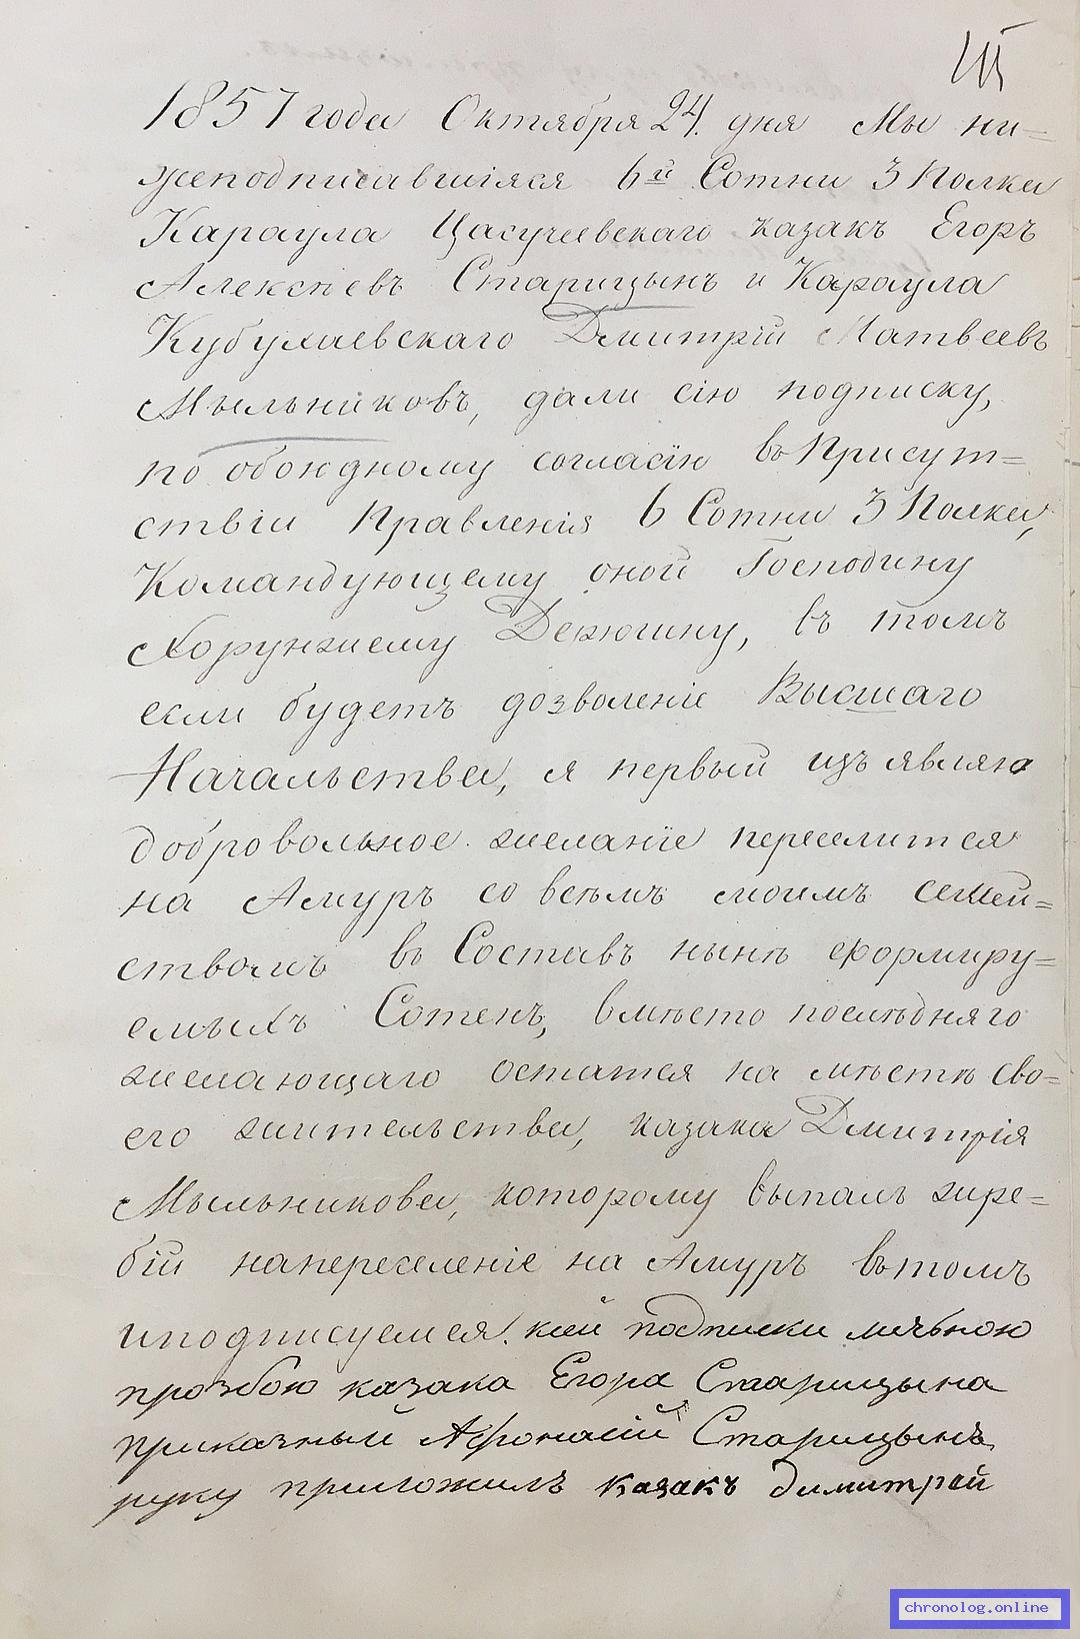 III
1857 года Октября 24. дня Мы ни=
жеподписавшіяся 6й Сотни 3 Полка
Караула Цасучеевскаго казакъ Егоръ
Алексѣевъ Старицынъ и Караула
Кубухаевскаго Дмитрій Матвеевъ
Мыльниковъ, дали сію подписку,
по обоюдному согласію въ Присут=
ствіи Правленія 6 Сотни 3 Полка,
Командующему оной Господину
Хорунжему Дерюгину, въ томъ
если будетъ дозволеніе Высшаго
Начальства, я первый изъявляю
добровольное желаніе переселится
на Амуръ со всѣмъ моимъ семей=
ствомъ въ Составъ нынѣ формиру=
емыхъ Сотенъ, вмѣсто послѣдняго
желающаго остатся на мѣстѣ сво=
его жительства, казака Дмитрія
Мыльникова, которому выпалъ жре=
бій напереселеніе на Амуръ вътомъ
иподписуемся. к сей подписки личьною
прозбою казака Егора Старицына
приказный Афонасій Старицынъ
руку приложилъ казакъ димитрей
chronolog.online